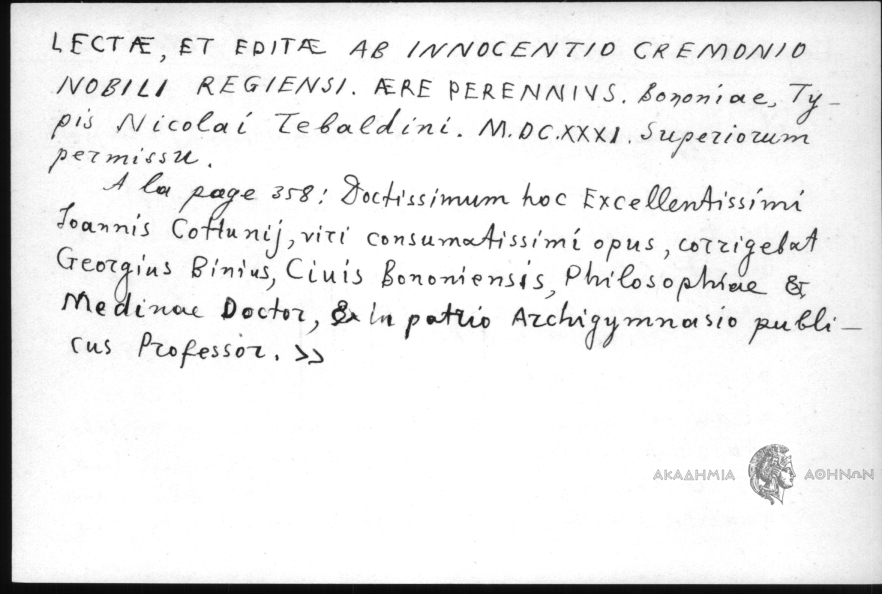 LECTÆ, ET EDITÆ AB INNOCENTIO CREMONIO
NOBILI REGIENSI. ÆRE PERENNIVS. Bononiae, Ty-
pis Nicolai Tebaldini. M.DC.XXXI. Superiorum
permissu.
A la page 358: Doctissimum hoc Excellentissimi
Ioannis Cottunij, viri consumatissimi opus, corrigebat
Georgius Binius, Ciuis Bononiensis, Philosophiae &
Medinae Doctor, & in patrio Archigymnasio publi-
cus Professor. >>
ΑΚΑΔΗΜΙΑ ΑΘΗΝΩΝ